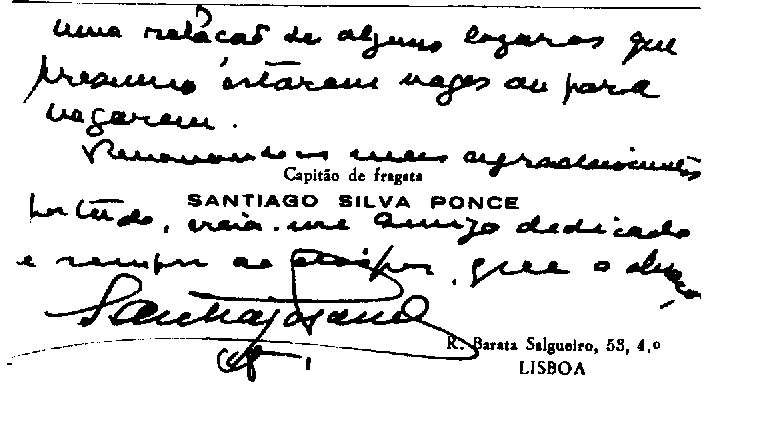 uma relação de alguns logares que
presumo estarem vagos ou para
vagarem.
Renovando os meus agradecimentos
Capitão de fragata
SANTIAGO SILVA PONCE
por tudo, creia-me amigo dedicado
e sempre ao dispor, que o abraça
Santiago Ponce
R. Barata Salgueiro, 53, 4.º
LISBOA